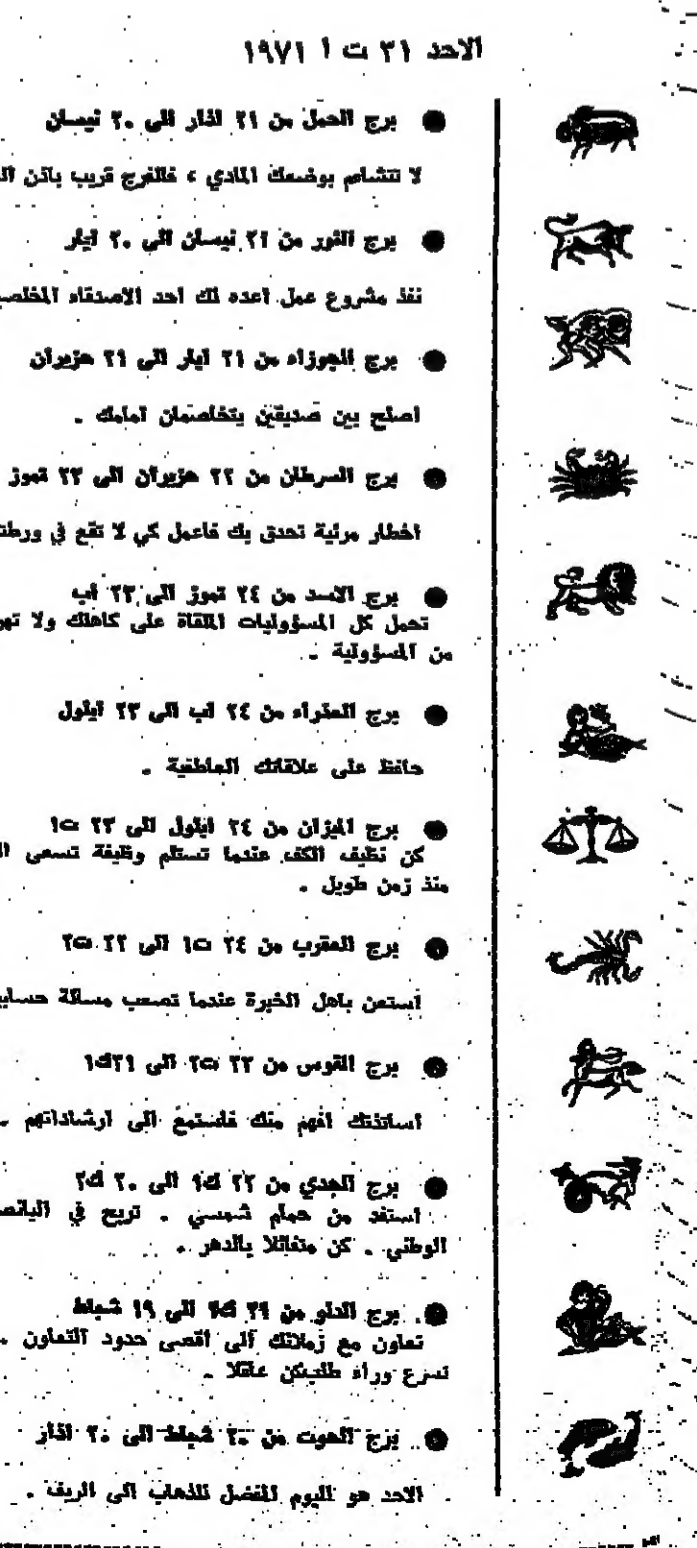 الاحد ٣١ ت ١ ١٩٧١
● برج الحمل من ٢١ اذار الى ٢٠ نيسان
لا تتشاءم بوضعك المادي ، فالفرج قريب باذن
● برج الثور من ٢١ نيسان الى ٢٠ ايار
نفذ مشروع عمل اعده لك احد الاصدقاء
● برج الجوزاء من ٢١ ايار الى ٢١ حزيران
اصلح بين صديقين يتخاصمان امامك .
● برج السرطان من ٢٢ حزيران الى ٢٣ تموز
اخطار مرئية تحدق بك فاعمل كي لا تقع في
● برج الاسد من ٢٤ تموز الى ٢٣ اب
تحمل كل المسؤوليات الملقاة على كاهلك ولا
من المسؤولية .
● برج العذراء من ٢٤ اب الى ٢٣ ايلول
حافظ على علاقاتك العاطفية .
● برج الميزان من ٢٤ ايلول الى ٢٣ ت١
كن نظيف الكف عندما تستلم وظيفة تسعى
منذ زمن طويل .
● برج العقرب من ٢٤ ت١ الى ٢٢ ت٢
استعن باهل الخبرة عندما تصعب مسالة
● برج القوس من ٢٣ ت٢ الى ٢١ك١
اساتذتك افهم منك فاستمع الى ارشاداتهم .
● برج الجدي من ٢٢ ك١ الى ٢٠ ك٢
استفد من حمام شمسي . تربح في
الوطني . كن متفائلا بالدهر .
● برج الدلو من ٢١ ك٢ الى ١٩ شباط
تعاون مع زملائك الى اقصى حدود التعاون .
تسرع وراء عاقلا .
● برج الحوت من ٢٠ شباط الى ٢٠ اذار
الاحد هو اليوم المفضل للذهاب الى الريف .